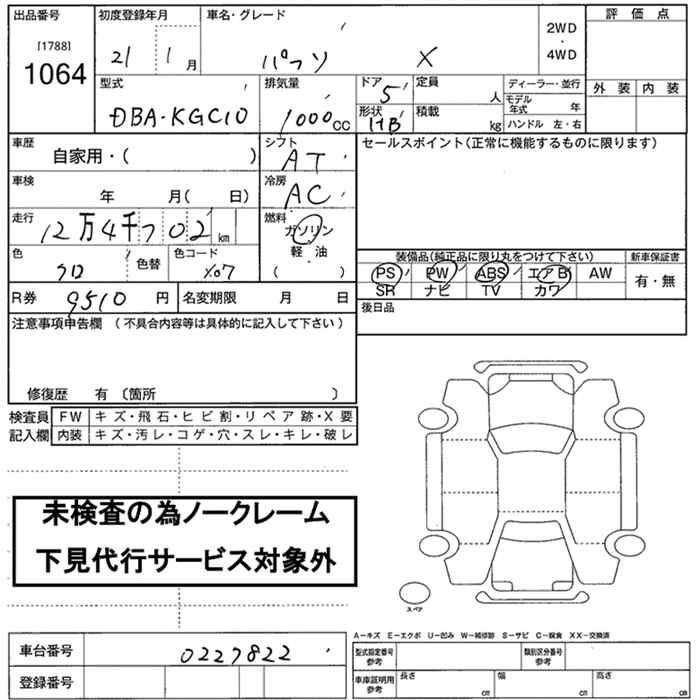 出品番号 初度登録年月 車名・グレード 評価点
[1788] 21 1 月 パッソ X 2WD ・ 4WD
1064
型式 排気量 ドア 定員 ディーラー・並行 外装 内装
DBA-KGC10 1000 CC 5 人 モデル年式 年
形状 積載 ハンドル 左・右
HB kg
車歴 シフト セールスポイント(正常に機能するものに限ります)
自家用・( ) AT
車検 冷房
年 月( 日) AC
走行 燃料
12万4千702 km ガソリン
色 色替 色コード 軽・油
クロ 209 ( )
装備品(純正品に限り丸をつけて下さい) 新車保証書
PS PW ABS エアB AW 有・無
SR ナビ TV カワ
R券 9510 円 名変期限 月 日
後日品
注意事項申告欄 (不具合内容等は具体的に記入して下さい)
修復歴 有 〔箇所 〕
検査員 FW キズ・飛石・ヒビ割・リペア跡・X要
記入欄 内装 キズ・汚レ・コゲ・穴・スレ・キレ・破レ
未検査の為ノークレーム
下見代行サービス対象外
スペア
A-キズ E-エクボ U-凹み W-補修跡 S-サビ C-腐食 XX-交換済
車台番号 0227822 型式指定番号 参考 類別区分番号 参考
登録番号 車庫証明用 参考 長さ cm 幅 cm 高さ cm